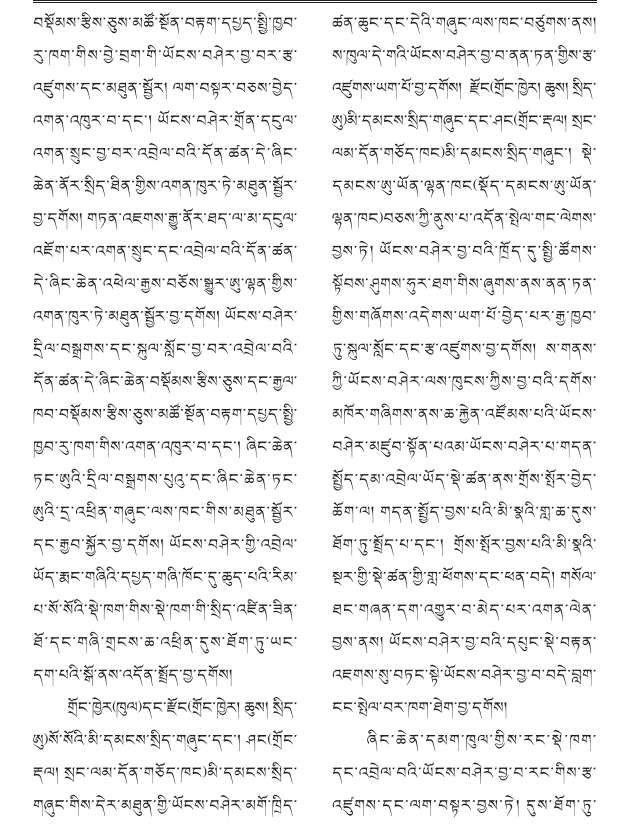 བསྡོམས་རྩིས་ཅུས་མཚོ་སྔོན་བརྟག་དཔྱད་སྤྱི་ཁྱབ་
རུ་ཁག་གིས་བྱེ་བྲག་གི་ཡོངས་བཤེར་བྱ་བར་རྩ་
འཛུགས་དང་མཐུན་སྦྱོར། ལག་བསྟར་བཅས་བྱེད་
འགན་འཁུར་བ་དང་། ཡོངས་བཤེར་གྲོན་དངུལ་
འགན་སྲུང་བྱ་བར་འབྲེལ་བའི་དོན་ཚན་དེ་ཞིང་
ཆེན་ནོར་སྲིད་ཐིན་གྱིས་འགན་ཁུར་ཏེ་མཐུན་སྦྱོར་
བྱ་དགོས། གཏན་འཇགས་རྒྱུ་ནོར་ཐད་ལ་མ་དངུལ་
འཇོག་པར་འགན་སྲུང་དང་འབྲེལ་བའི་དོན་ཚན་
དེ་ཞིང་ཆེན་འཕེལ་རྒྱས་བཅོས་སྒྱུར་ཨུ་ལྷན་གྱིས་
འགན་ཁུར་ཏེ་མཐུན་སྦྱོར་བྱ་དགོས། ཡོངས་བཤེར་
དྲིལ་བསྒྲགས་དང་སྐུལ་སློང་བྱ་བར་འབྲེལ་བའི་
དོན་ཚན་དེ་ཞིང་ཆེན་བསྡོམས་རྩིས་ཅུས་དང་རྒྱལ་
ཁབ་བསྡོམས་རྩིས་ཅུས་མཚོ་སྔོན་བརྟག་དཔྱད་སྤྱི་
ཁྱབ་རུ་ཁག་གིས་འགན་འཁུར་བ་དང་། ཞིང་ཆེན་
ཏང་ཨུའི་དྲིལ་བསྒྲགས་པུའུ་དང་ཞིང་ཆེན་ཏང་
ཨུའི་དྲ་འཕྲིན་གཞུང་ལས་ཁང་གིས་མཐུན་སྦྱོར་
དང་རྒྱབ་སྐྱོར་བྱ་དགོས། ཡོངས་བཤེར་གྱི་འབྲེལ་
ཡོད་རྨང་གཞིའི་དཔྱད་གཞི་ཁོང་དུ་ཆུད་པའི་རིམ་
པ་སོ་སོའི་སྡེ་ཁག་གིས་སྡེ་ཁག་གི་སྲིད་འཛིན་ཟིན་
ཐོ་དང་གཞི་གྲངས་ཆ་འཕྲིན་དུས་ཐོག་ཏུ་ཡང་
དག་པའི་སྒོ་ནས་འདོན་སྤྲོད་བྱ་དགོས།
གྲོང་ཁྱེར(ཁུལ)དང་རྫོང(གྲོང་ཁྱེར། ཆུས། སྲིད་
ཨུ)སོ་སོའི་མི་དམངས་སྲིད་གཞུང་དང་། ཤང(གྲོང་
རྡལ། སྲང་ལམ་དོན་གཅོད་ཁང)མི་དམངས་སྲིད་
གཞུང་གིས་དེར་མཐུན་གྱི་ཡོངས་བཤེར་མགོ་ཁྲིད་
ཚན་ཆུང་དང་དེའི་གཞུང་ལས་ཁང་བཙུགས་ནས།
ས་ཁུལ་དེ་གའི་ཡོངས་བཤེར་བྱ་བ་ནན་ཏན་གྱིས་རྩ་
འཛུགས་ཡག་པོ་བྱ་དགོས། རྫོང(གྲོང་ཁྱེར། ཆུས། སྲིད་
ཨུ)མི་དམངས་སྲིད་གཞུང་དང་ཤང(གྲོང་རྡལ། སྲང་
ལམ་དོན་གཅོད་ཁང)མི་དམངས་སྲིད་གཞུང་། སྡེ་
དམངས་ཨུ་ཡོན་ལྷན་ཁང(སྡོད་དམངས་ཨུ་ཡོན་
ལྷན་ཁང)བཅས་ཀྱི་ནུས་པ་འདོན་སྤེལ་གང་ལེགས་
བྱས་ཏེ། ཡོངས་བཤེར་བྱ་བའི་ཁྲོད་དུ་སྤྱི་ཚོགས་
སྟོབས་ཤུགས་ཧུར་ཐག་གིས་ཞུགས་ནས་ནན་ཏན་
གྱིས་གཞོགས་འདེགས་ཡག་པོ་བྱེད་པར་རྒྱ་ཁྱབ་
ཏུ་སྐུལ་སློང་དང་རྩ་འཛུགས་བྱ་དགོས། ས་གནས་
ཀྱི་ཡོངས་བཤེར་ལས་ཁུངས་ཀྱིས་བྱ་བའི་དགོས་
མཁོར་གཞིགས་ནས་ཆ་རྐྱེན་འཛོམས་པའི་ཡོངས་
བཤེར་མཛུབ་སྟོན་པའམ་ཡོངས་བཤེར་པ་གདན་
སྤྱོད་དམ་འབྲེལ་ཡོད་སྡེ་ཚན་ནས་གྲོས་སྤོར་བྱེད་
ཆོག་ལ། གདན་སྤྱོད་བྱས་པའི་མི་སྣའི་གླ་ཆ་དུས་
ཐོག་ཏུ་སྤྲོད་པ་དང་། གྲོས་སྤོར་བྱས་པའི་མི་སྣའི་
སྔར་གྱི་སྡེ་ཚན་གྱི་གླ་ཕོགས་དང་ཕན་བདེ། གསོལ་
ཐང་གཞན་དག་འགྱུར་བ་མེད་པར་འགན་ལེན་
བྱས་ནས། ཡོངས་བཤེར་བྱ་བའི་དཔུང་སྡེ་བརྟན་
འཇགས་སུ་བཏང་སྟེ་ཡོངས་བཤེར་བྱ་བ་བདེ་བླག་
ངང་སྤེལ་བར་ཁག་ཐེག་བྱ་དགོས།
ཞིང་ཆེན་དམག་ཁུལ་གྱིས་རང་སྡེ་ཁག་
དང་འབྲེལ་བའི་ཡོངས་བཤེར་བྱ་བ་རང་གིས་རྩ་
འཛུགས་དང་ལག་བསྟར་བྱས་ཏེ། དུས་ཐོག་ཏུ་